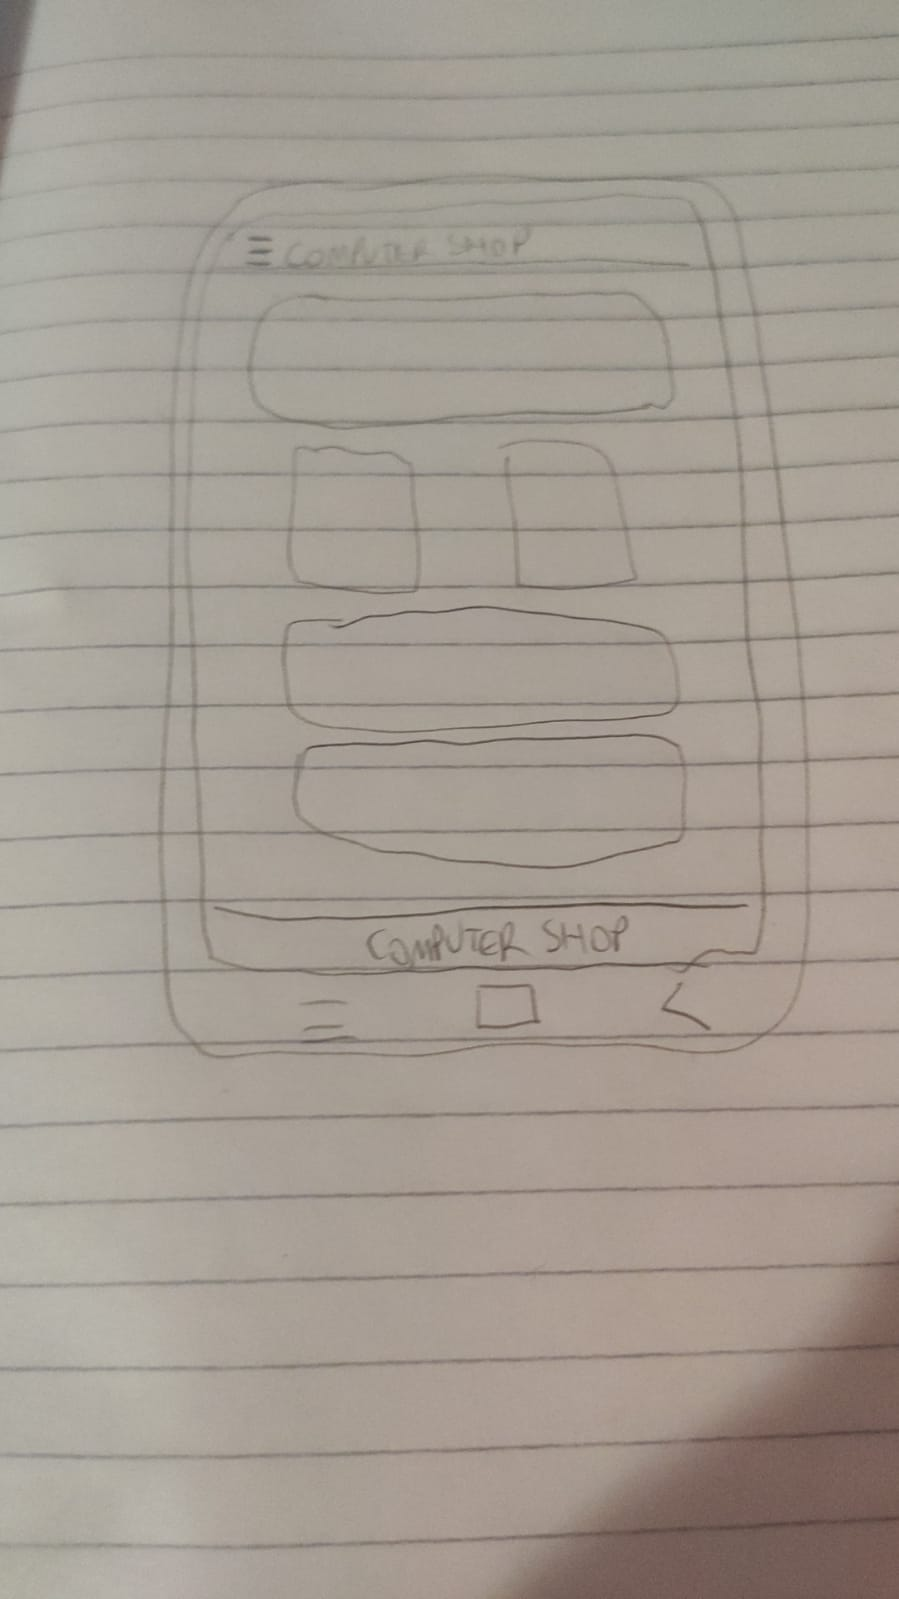 COMPUTER SHOP
COMPUTER SHOP